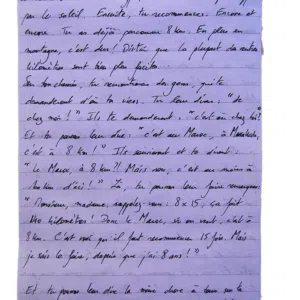 par le soleil. Ensuite, tu recommences. Encore et
encore. Tu as déjà parcouru 8 km. En plus en
montagne, c'est dur! Disons que la plupart des autres
kilomètres sont bien plus faciles.
Sur ton chemin, tu rencontreras des gens, qui te
demanderont d'où tu viens. Tu leur diras: "de
chez moi!" Ils te demanderont: "c'est où chez toi?"
Et tu pourras leur dire: "c'est au Maroc, à Marrakech,
c'est à 8 km!" Ils souriront et te diront:
"Le Maroc, à 8 km?! Mais non, c'est au moins à
km d'ici!" Là, tu pourras leur faire remarquer:
"Monsieur, madame, rappelez-vous: 8 x 15, ça fait
kilomètres! Donc le Maroc, si on veut, c'est à
8 km. C'est vrai qu'il faut recommencer 15 fois. Mais
je sais le faire, depuis que j'ai 8 ans!"
Et tu pourras leur dire la même chose à tous